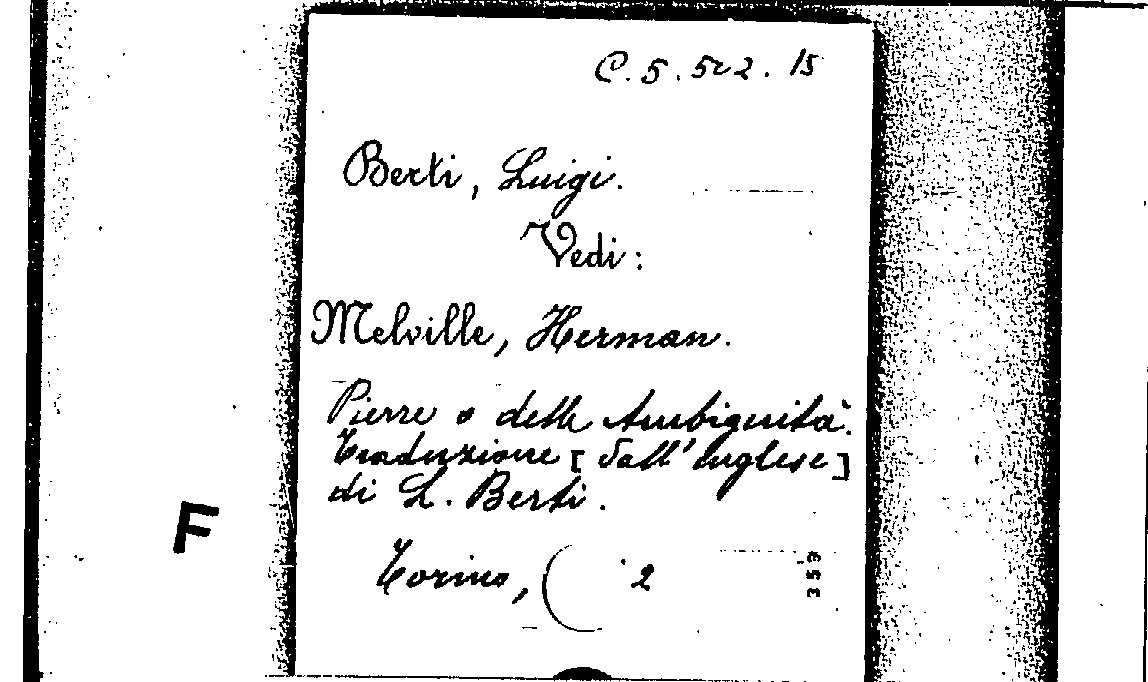 C. 5. 502. 15
Berti, Luigi.
Vedi:
Melville, Herman.
Pierre o delle Ambiguità.
Traduzione [dall'Inglese]
di L. Berti.
F
Torino, ( 2
353